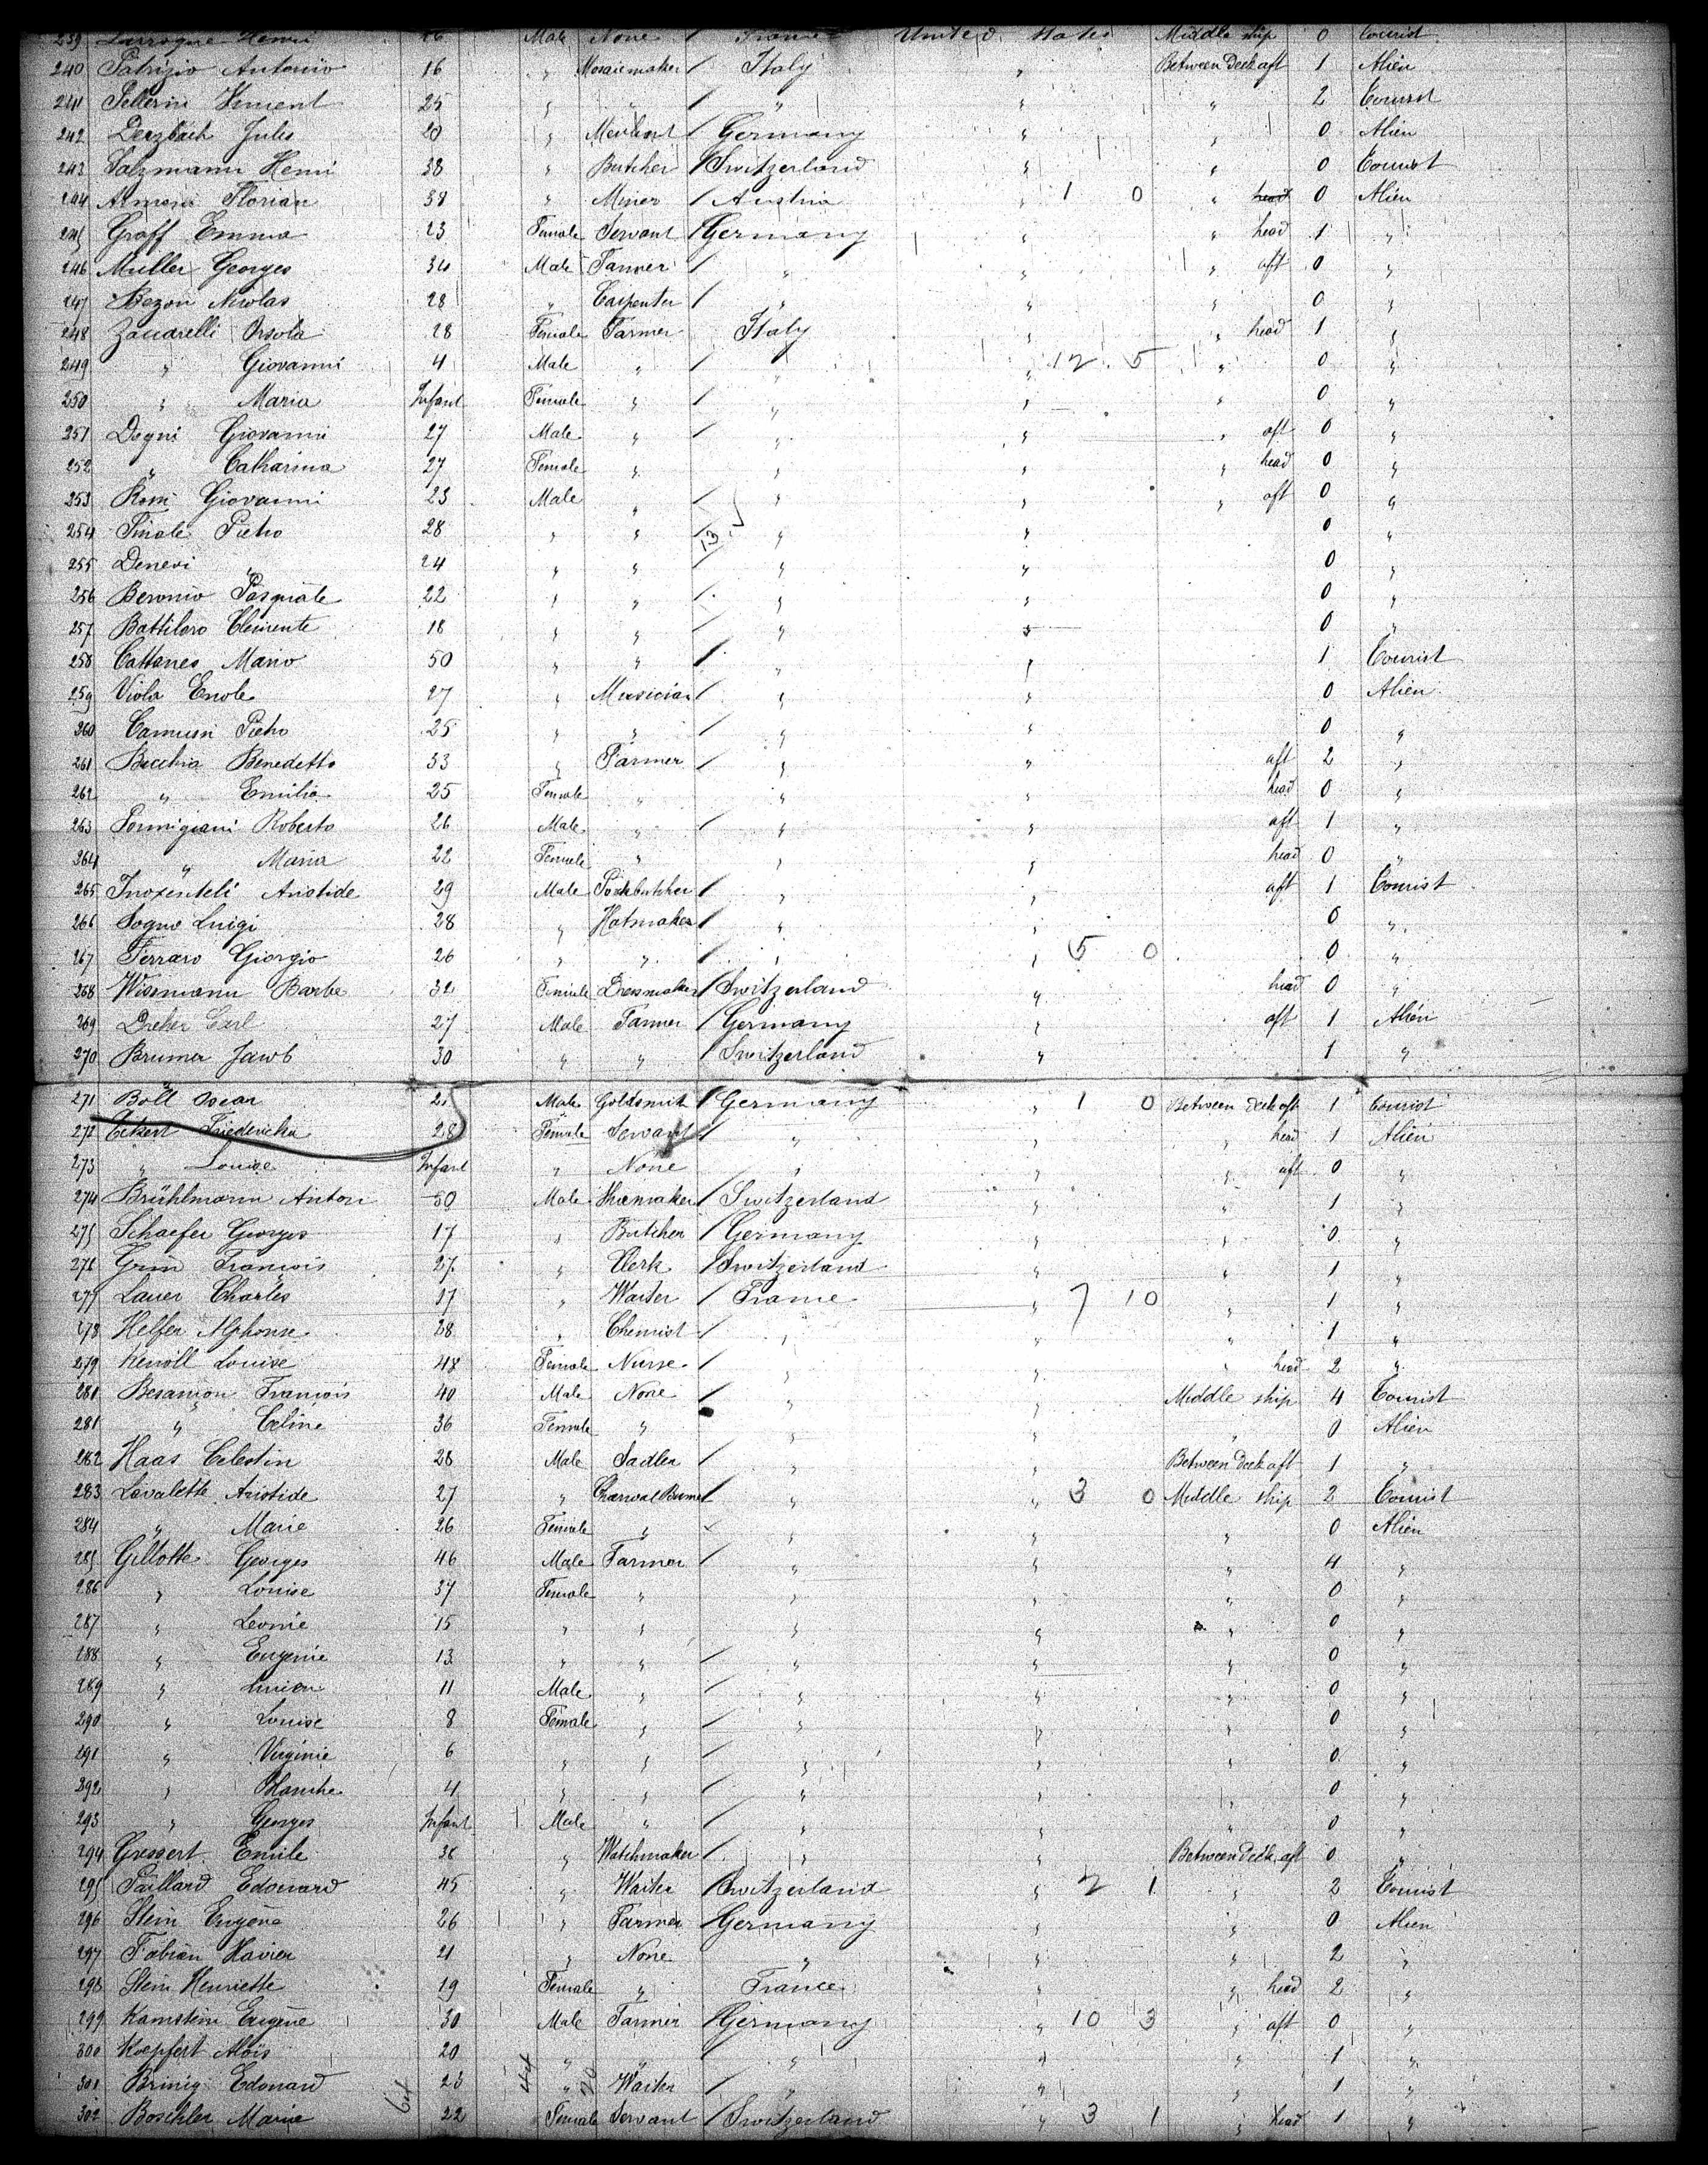 239 Larroque Henri 46 Male None / France United States Middle ship 0 Tourist
240 Patrizio Antonio 16 " Mosaicmaker / Italy " Between Deck aft 1 Alien
241 Pellerin Vincent 25 " " / " " " 2 Tourist
242 Derzbach Jules 20 " Merchant / Germany " " 0 Alien
243 Salzmann Henri 38 " Butcher / Switzerland " " 0 Tourist
244 Florian 38 " Miner / Austria " 1 0 " head 0 Alien
245 Graff Emma 23 Female Servant / Germany " " head 1 "
246 Muller Georges 34 Male Farmer / " " " aft 0 "
247 Bezon Nicolas 28 " Carpenter / " " " 0 "
248 Zaccarelli Orsola 28 Female Farmer Italy " " head 1 "
249 " Giovanni 4 Male " / " " 12 5 " 0 "
250 " Maria Infant Female " / " " " 0 "
251 Degni Giovanni 27 Male " / " " " aft 0 "
252 " Catharina 27 Female " " " " head 0 "
253 Rossi Giovanni 23 Male " / " " " aft 0 "
254 Finale Pietro 28 " " / 13 " " 0 "
255 Denevi " 24 " " / " " 0 "
256 Beronio Pasquale 22 " " / " " 0 "
257 Battiloro Clemente 18 " " / " " 0 "
258 Cattaneo Mario 50 " " / " " 1 Tourist
259 Viola Ercole 27 " Musician / " " 0 Alien
260 Camussi Pietro 25 " " / " " 0 "
261 Bacchia Benedetto 33 " Farmer / " " aft 2 "
262 " Emilia 25 Female " " " head 0 "
263 Formigiani Roberto 26 Male " / " " aft 1 "
264 " Maria 22 Female " " " head 0 "
265 Aristide 29 Male Porkbutcher / " " aft 1 Tourist
266 Sogno Luigi 28 " Hatmaker / " " 0 "
267 Ferraro Giorgio 26 " " / " " 5 0 0 "
268 Wissmann Barbe 32 Female Dressmaker / Switzerland " head 0 "
269 Dreher Carl 27 Male Farmer / Germany " aft 1 Alien
270 Brunner Jacob 30 " " / Switzerland " 1 "
271 Böll Oscar 25 Male Goldsmith / Germany " 1 0 Between deck aft 1 Tourist
272 Eckert Friedericka 28 Female Servant / " " " head 1 Alien
273 " Louise Infant " None " " " aft 0 "
274 Brühlmann Anton 50 Male Shoemaker / Switzerland " " 1 "
275 Schaefer Georges 17 " Butcher / Germany " " 0 "
276 Grün François 27 " Clerk / Switzerland " " 1 "
277 Lauer Charles 17 " Waiter / France " 7 10 " 1 "
278 Helfer Alphonse 28 " Chemist / " " " 1 "
279 Kenoll Louise 48 Female Nurse / " " " head 2 "
280 Besançon François 40 Male None / " " Middle ship 4 Tourist
281 " Celine 36 Female " " " " 0 Alien
282 Haas Celestin 28 Male Sadler / " " Between Deck aft 1 "
283 Lavalette Aristide 27 " Charcoal Burner / " " 3 0 Middle ship 2 Tourist
284 " Marie 26 Female " " " " 0 Alien
285 Gillotte Georges 46 Male Farmer / " " " 4 "
286 " Louise 37 Female " " " " 0 "
287 " Leonie 15 " " " " " 0 "
288 " Eugenie 13 " " / " " " 0 "
289 " Lucien 11 Male " / " " " 0 "
290 " Louise 8 Female " / " " " 0 "
291 " Virginie 6 " " / " " " 0 "
292 " Blanche 4 " " / " " " 0 "
293 " Georges Infant Male " / " " " 0 "
294 Gressert Emile 38 " Watchmaker / " " Between deck aft 0 "
295 Paillard Edouard 45 " Waiter / Switzerland " 2 1 " 2 Tourist
296 Stein Eugene 26 " Farmer / Germany " " 0 Alien
297 Fabian Xavier 21 " None " " " 2 "
298 Stein Henriette 19 Female " France " " head 2 "
299 Kamstein Eugène 30 Male Farmer / Germany " 10 3 " aft 0 "
300 Koepfert Aloïs 20 " " / " " " 1 "
301 Brinig Edouard 23 " Waiter / " " " 1 "
302 Boschler Marie 22 Female Servant / Switzerland " 3 1 " head 1 "